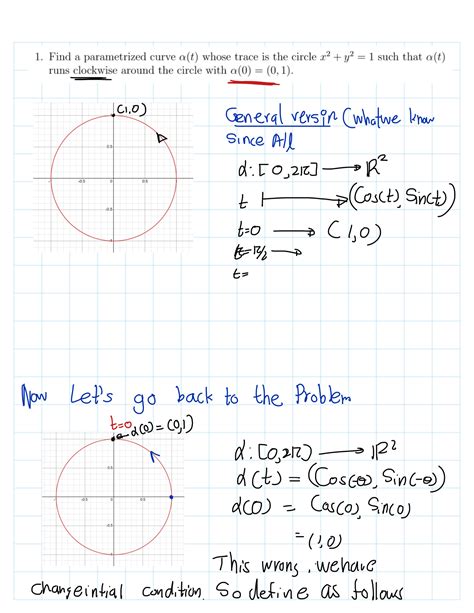 1. Find a parametrized curve α(t) whose trace is the circle x² + y² = 1 such that α(t)
runs clockwise around the circle with α(0) = (0, 1).
(1,0)
General versin (whatwe know
Since All
α: [0,2π] → R²
t ↦ (Cos(t), Sin(t))
t=0 → (1,0)
t=π/2 →
t=
Now Let's go back to the Problem
t=0
α(0) = (0,1)
α: [0,2π) → R²
α(t) = (Cos(-θ), Sin(-θ))
α(0) = Cos(0), Sin(0)
= (1,0)
This wrong, wehave
Changeintial condition. So define as follows